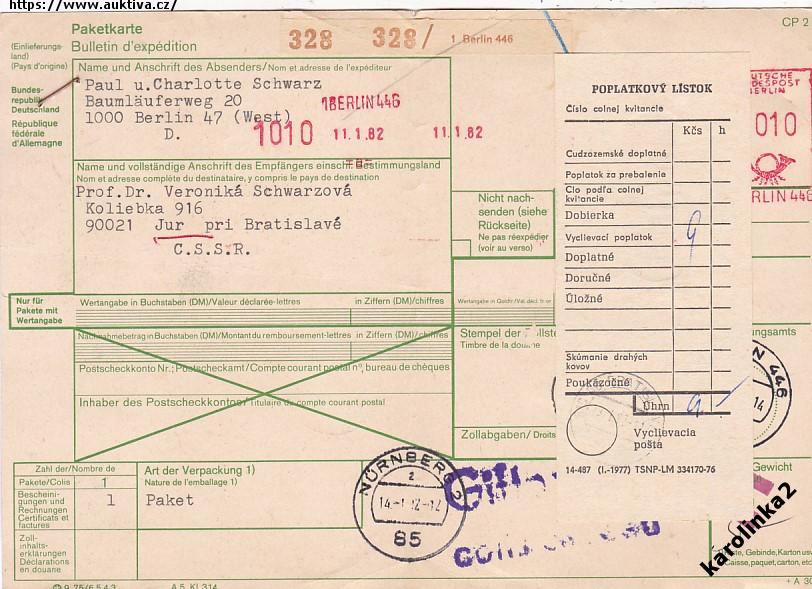 https://www.auktiva.cz/
Paketkarte
Bulletin d'expédition
(Einlieferungs-
land)
(Pays d'origine)
Bundes-
republik
Deutschland
République
fédérale
d'Allemagne
328 328/ 1 Berlin 446
CP 2
Name und Anschrift des Absenders/Nom et adresse de l'expéditeur
Paul u.Charlotte Schwarz
Baumläuferweg 20
1000 Berlin 47 (West)
D.
1BERLIN446
1010 11.1.82 11.1.82
Name und vollständige Anschrift des Empfängers einschl. Bestimmungsland
Nom et adresse complète du destinataire, y compris le pays de destination
Prof.Dr. Veroniká Schwarzová
Koliebka 916
90021 Jur pri Bratislavé
C.S.S.R.
Nicht nach-
senden (siehe
Rückseite)
Ne pas réexpédier
(voir au verso)
POPLATKOVÝ LÍSTOK
Číslo colnej kvitancie
Kčs h
Cudzozemské doplatné
Poplatok za prebalenie
Clo podľa colnej
kvitancie
Dobierka
Vyclievací poplatok 9
Doplatné
Doručné
Úložné
Skúmanie drahých
kovov
Poukazočné
Úhrn 9 –
Vyclievacia
pošta
14-487 (I.-1977) TSNP-LM 334170-76
UTSCHE
DESPOST
BERLIN
010
RLIN 446
Nur für
Pakete mit
Wertangabe
Wertangabe in Buchstaben (DM)/Valeur déclarée-lettres in Ziffern (DM)/chiffres
Nachnahmebetrag in Buchstaben (DM)/Montant du remboursement-lettres in Ziffern (DM)/chiffres
Postscheckkonto Nr.; Postscheckamt/Compte courant postal n°, bureau de chèques
Inhaber des Postscheckkontos/Titulaire du compte courant postal
Stempel der
Timbre de la
Zollabgaben/Droits
ungsamts
N 446
14
Zahl der/Nombre de
Pakete/Colis 1
Bescheini-
gungen und
Rechnungen
Certificats et
factures
1
Zoll-
inhalts-
erklärungen
Déclarations
en douane
Art der Verpackung 1)
Nature de l'emballage 1)
Paket
NÜRNBERG 2
85
Gewicht
Kiste, Gebinde, Karton usw
Caisse, paquet, carton, etc.
A 5, Kl 314
karolinka2